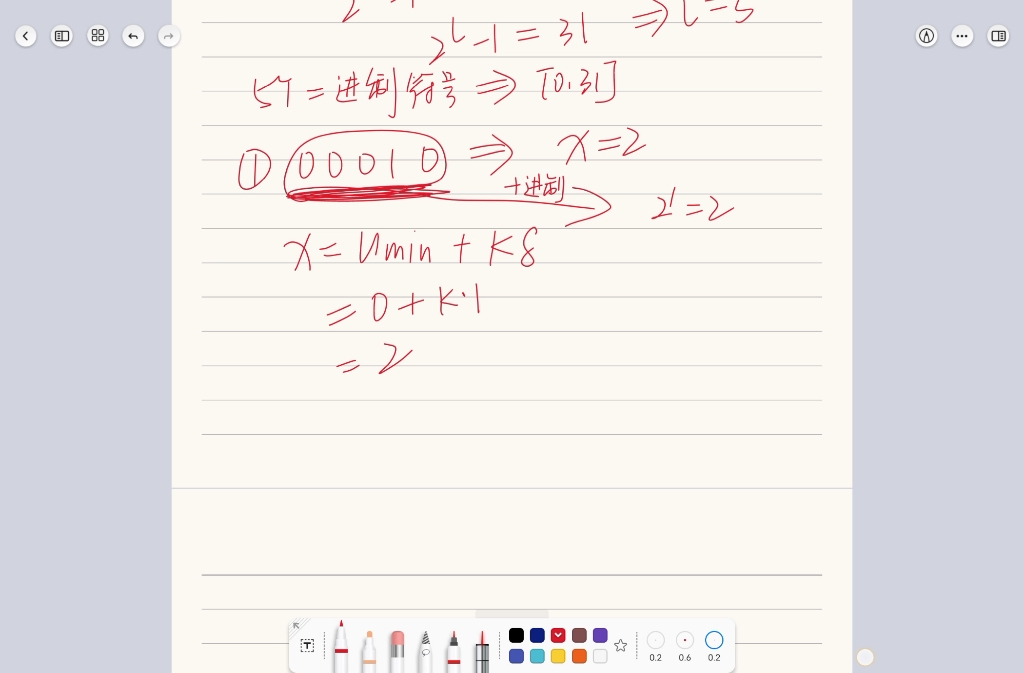 2^l-1=31 ⇒ l=5
5个=进制符号 ⇒ [0,31]
① 00010 ⇒ x=2
十进制 2^1=2
x=Umin+Kδ
=0+K·1
=2
0.2 0.6 0.2